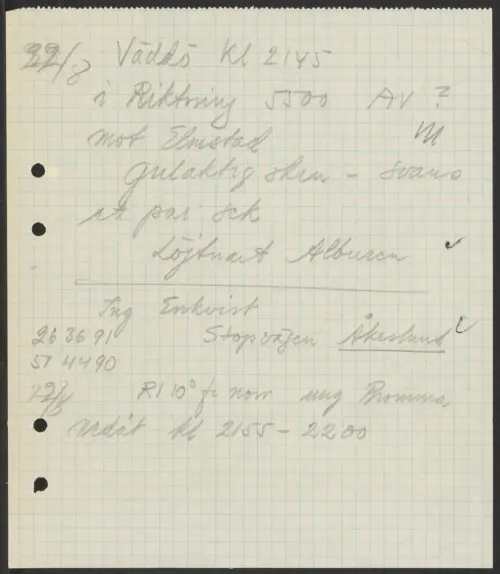 22/8 Väddö Kl 2145
i Riktning 5500 AV ?
mot Elmstad
gulaktig sken - svans
ett par sek
Löjtnant Alburen
Ing Enkvist
26 36 91 Stopvägen Åkeslund
51 44 90
22/8 RI 10° fr norr ung Bromma
nedåt kl 2155 - 2200